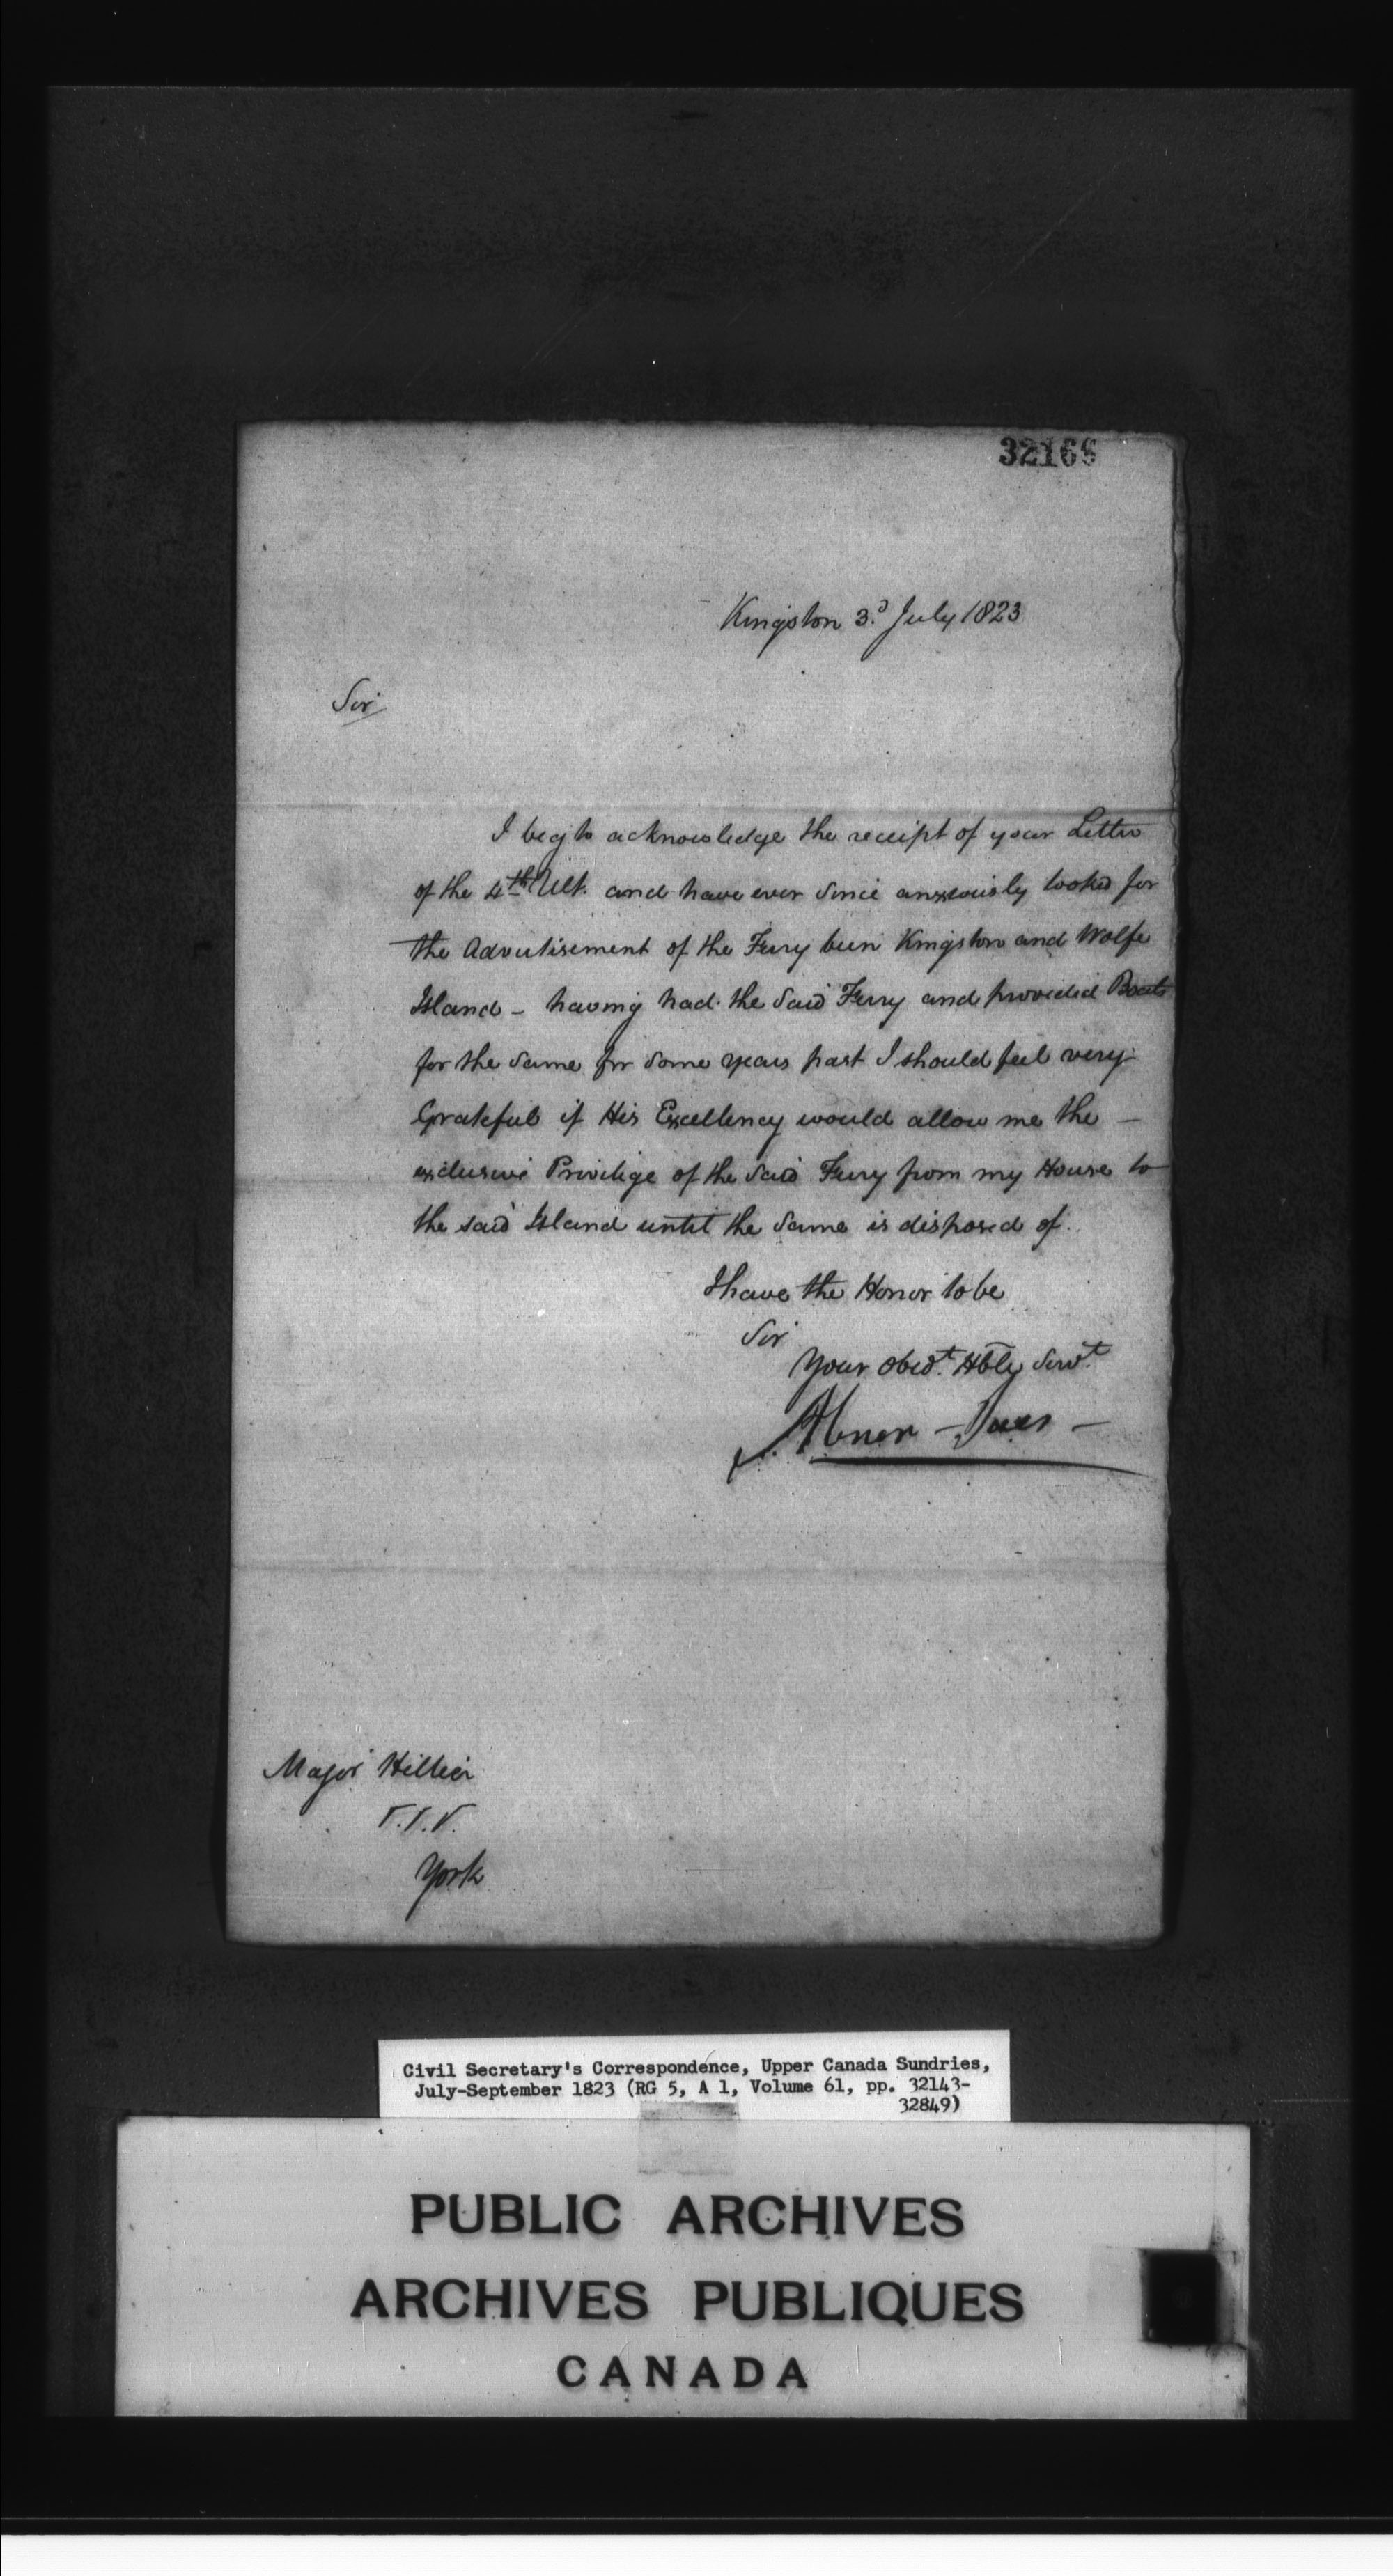 32168
Kingston 3.d July 1823
Sir
I beg to acknowledge the receipt of your Letter
of the 4th Ult. and have ever since anxiously looked for
the Advertisement of the Ferry been Kingston and Wolfe
Island – having had the said Ferry and provided Boats
for the same for some years past I should feel very
Grateful if His Excellency would allow me the –
exclusive Privilige of the said Ferry from my House to
the said Island until the same is disposed of.
I have the Honor to be
Sir
Your obedt. Hble Servt.
Abner Ives –
Major Hillier
York
Civil Secretary's Correspondence, Upper Canada Sundries,
July-September 1823 (RG 5, A 1, Volume 61, pp. 32143-
32849)
PUBLIC ARCHIVES
ARCHIVES PUBLIQUES
CANADA